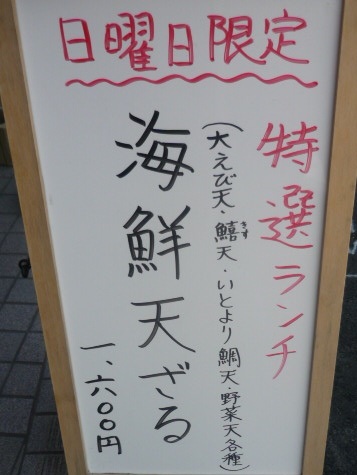 日曜日限定
特選ランチ
(大えび天・鱚天・いとより鯛天・野菜天各種)
きす
海鮮天ざる
一、六〇〇円